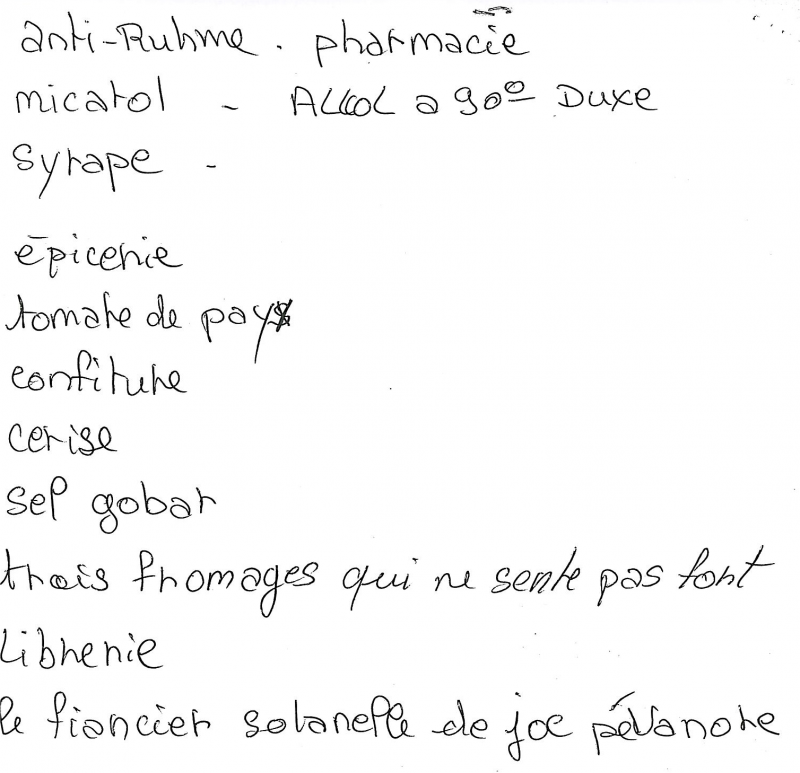 anti-Ruhme. pharmacie
micatol - ALLCOL a 90º DUXE
Syrape -
épicerie
tomate de pays
confiture
cerise
sel gobar
trois fromages qui ne sente pas fort
Librerie
le fiancier solanelle de joe pévanore